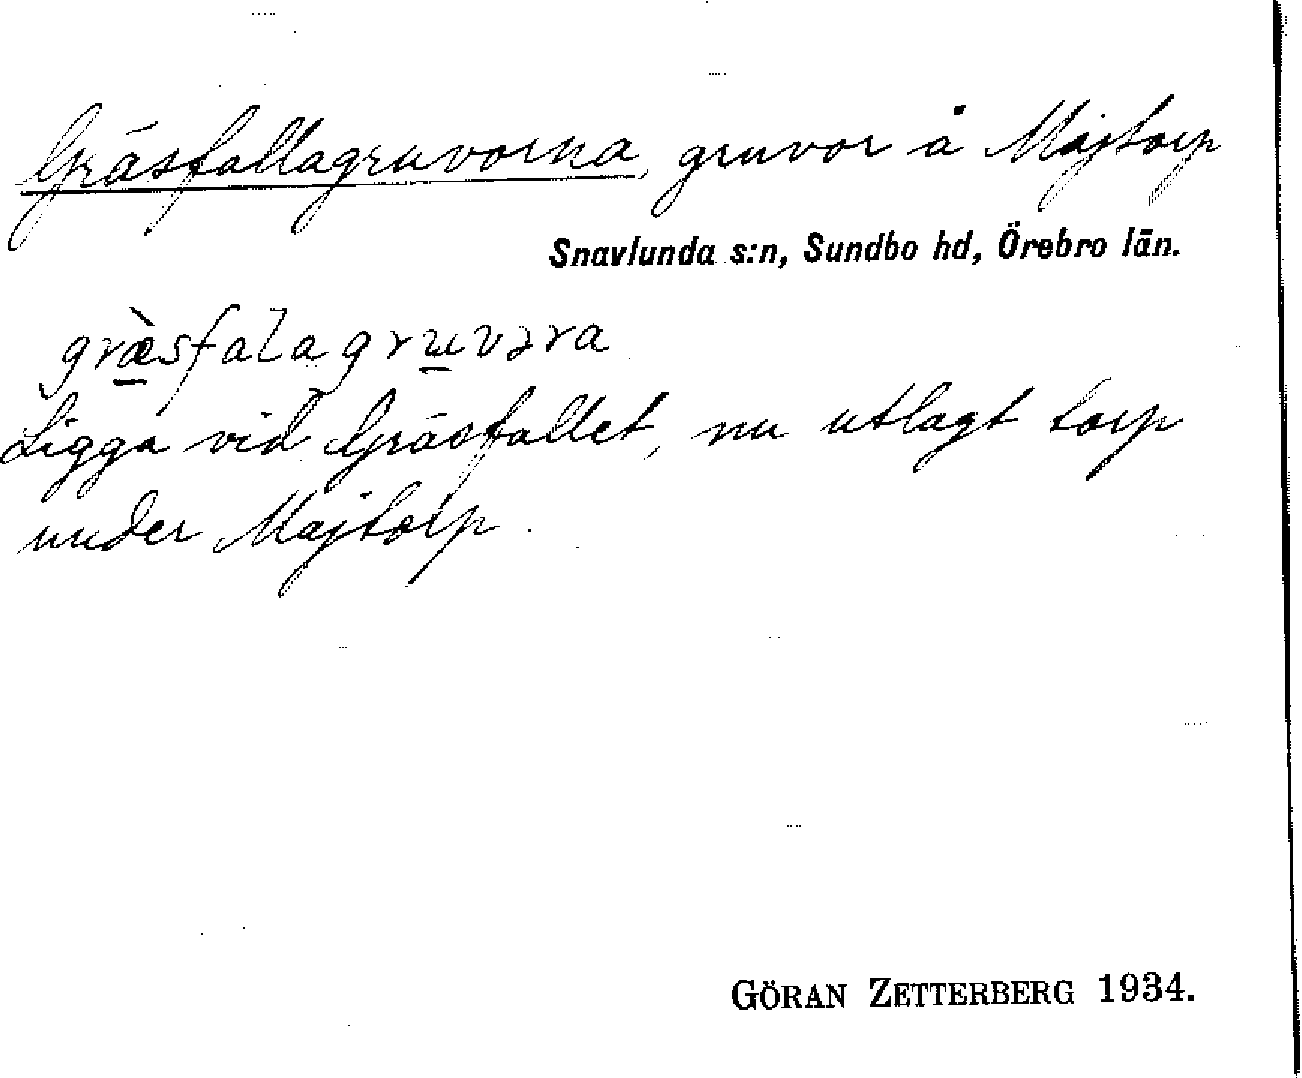 Gräsfallagruvorna, gruvor å Majtorp
Snavlunda s:n, Sundbo hd, Örebro län.
græ̀sfalagruvɔra
Ligga vid Gräsfallet, nu utlagt torp
under Majtorp.
GÖRAN ZETTERBERG 1934.